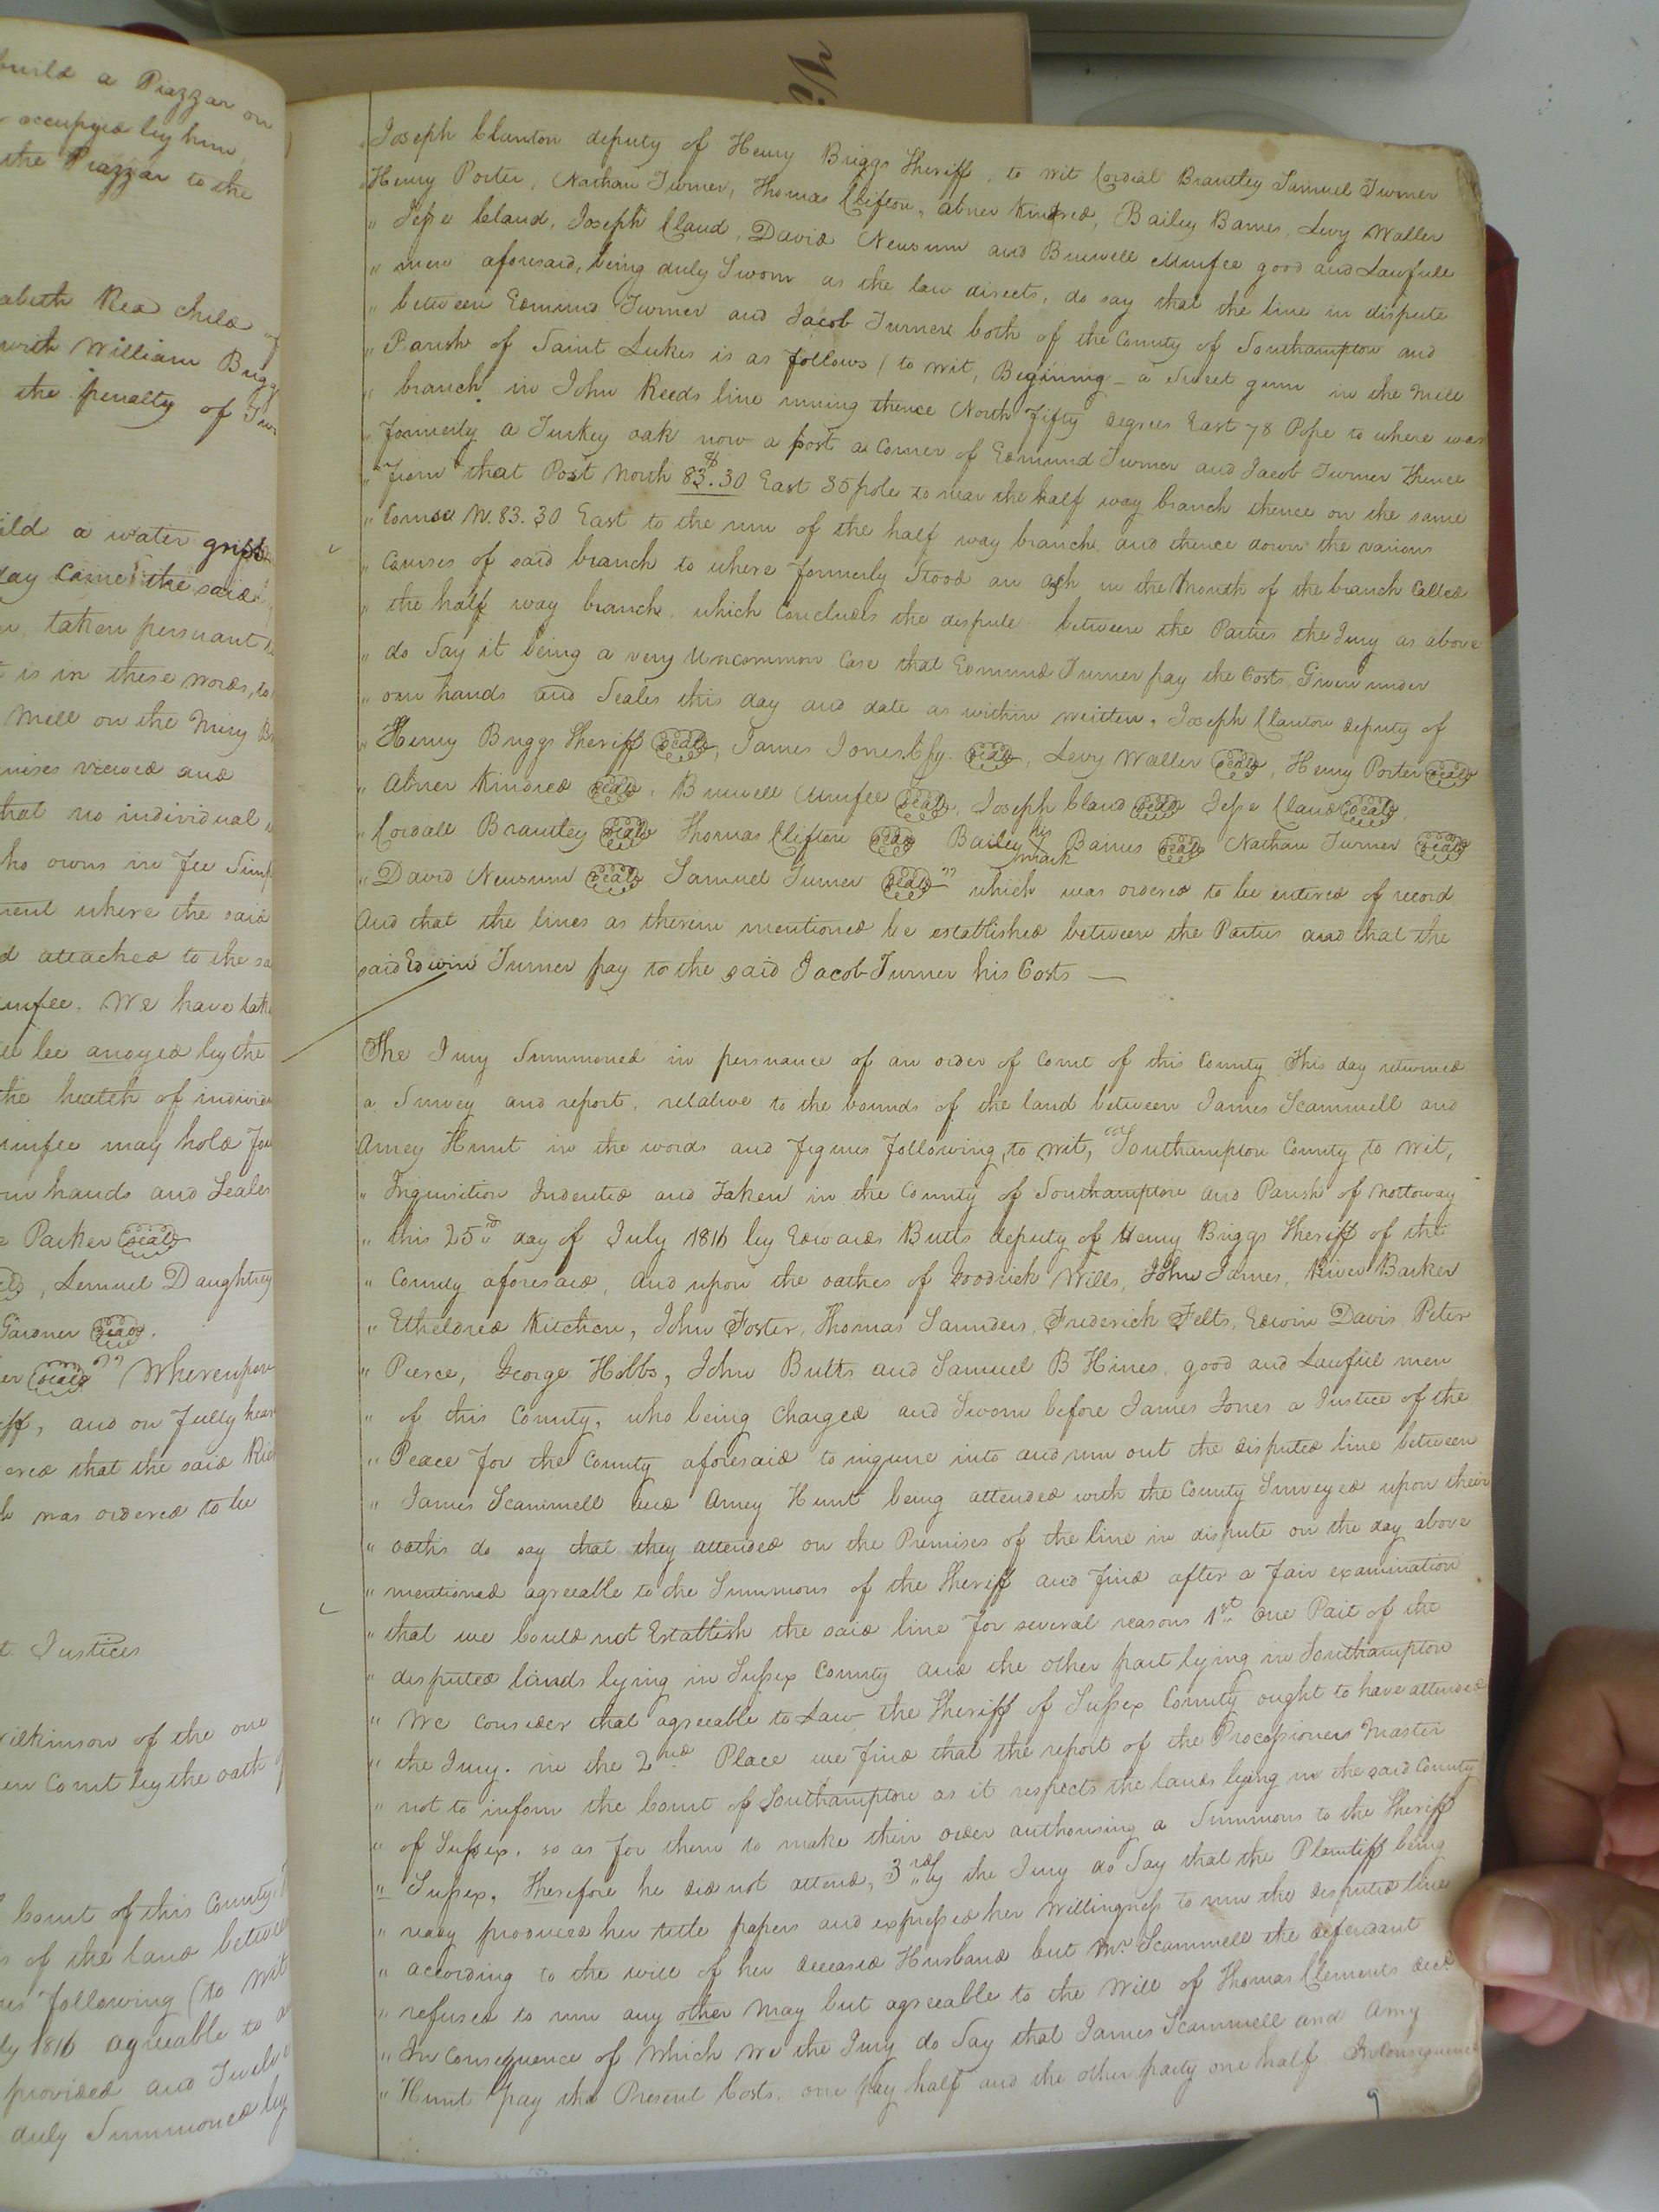 build a Piazzar on
occupyed by him
the Piazzar to the
abeth Rea child of
with William Brigg
the penalty of Two
ild a water grist
day came the said
taken persuant
is in these words, to
Mill on the Miery
mises viewed and
that no individual
ho owns in fee Simp
ment where the said
d attached to the sa
umfee. We have take
ll be anoyed by the
the health of individu
umfee may hold for
our hands and Seales
Parker Seal
Lemuel Daughtrey
Gardner Seal,
er Seal" Whereupon
ff, and on fully hear
ered that the said Ric
h was ordered to be
t. Justices
Wilkinson of the one
en Court by the oath of
Court of this County
s of the land betwee
res following (to wit
ly 1816 agreeable to a
provided and Twelve
duly Summoned by
Joseph Clanton deputy of Henry Briggs Sheriff, to wit Cordial Brantley Samuel Turner
Henry Porter, Nathan Turner, Thomas Clifton, Abner Kindred, Bailey Barnes, Levy Waller
" Jesse Claud, Joseph Claud, David Newsum and Burwell Mumfee good and Lawfull
" men aforesaid, being duly Sworn as the law directs, do say that the line in dispute
" between Edmund Turner and Jacob Turner both of the County of Southampton and
" Parish of Saint Lukes is as follows (to wit, Begining - a Sweet gum in the Mill
" branch in John Reeds line runing thence North fifty degrees East 78 Pole to where was
" formerly a Turkey oak now a post a corner of Edmund Turner and Jacob Turner thence
" from that Post North 83.30 East 35 pole to near the half way branch thence on the same
" Course N. 83. 30 East to the run of the half way branch and thence down the various
" Courses of said branch to where formerly Stood an ash in the Mouth of the branch Called
" the half way branch, which Concludes the dispute between the Parties the Jury as above
" do Say it being a very Uncommon Case that Edmund Turner pay the Costs Given under
" our hands and Seales this day and date as within written. Joseph Clanton deputy of
" Henry Briggs Sheriff Seal, James Jones Cfy. Seal, Levy Waller Seal, Henry Porter Seal
" Abner Kindred Seal. Burwell Mumfee Seal, Joseph Claud Seal Jesse Claud Seal,
" Cordall Brantley Seal Thomas Clifton Seal Bailey his X mark Barnes Seal Nathan Turner Seal
" David Newsum Seal Samuel Turner Seal" which was ordered to be entered of record
And that the lines as therein mentioned be established between the Parties and that the
said Edwin Turner pay to the said Jacob Turner his Costs —
The Jury Summoned in persuance of an order of Court of this County This day returned
a Survey and report, relative to the bounds of the land between James Scammell and
Amey Hunt in the words and figures following, to wit, "Southampton County to wit,
" Inquisition Indented and Taken in the County of Southampton and Parish of Nottoway
" this 25nd day of July 1816 by Edwards Butts deputy of Henry Briggs Sheriff of the
" County aforesaid, and upon the oathes of Goodrich Wills, John James, River Barker
" Etheldred Kitchen, John Foster, Thomas Saunders, Frederick Felts, Edwin Davis Peter
" Pierce, George Hobbs, John Butts and Samuel B Hines, good and Lawfull men
" of this County, who being Charged and Sworn before James Jones a Justice of the
" Peace for the County aforesaid to inquire into and run out the disputed line between
" James Scammell and Amey Hunt being attended with the County Surveyed upon their
" oaths do say that they attended on the Premises of the line in dispute on the day above
" mentioned agreeable to the Summons of the Sheriff and find after a fair examination
" that we Could not Establish the said line for several reasons 1st One Part of the
" disputed lands lying in Sussex County and the other part lying in Southampton
" We consider that agreeable to Law the Sheriff of Sussex County ought to have attended
" the Jury. in the 2nd Place we find that the report of the Processioners Master
" not to inform the Court of Southampton as it respects the lands lying in the said County
" of Sussex, so as for them to make their order authorising a Summons to the Sheriff
" Sussex, Therefore he did not attend, 3rdly the Jury do Say that the Plantiff being
" ready produced her title papers and expressed her Willingness to run the disputed line
" according to the will of her deceased Husband but Mr. Scammell the defendant
" refused to run any other way but agreeable to the Will of Thomas Clements decd
" In Consequence of Which We the Jury do Say that James Scammell and Amy
" Hunt pay the Present Costs. one pay half and the other party one half In Consequence
9